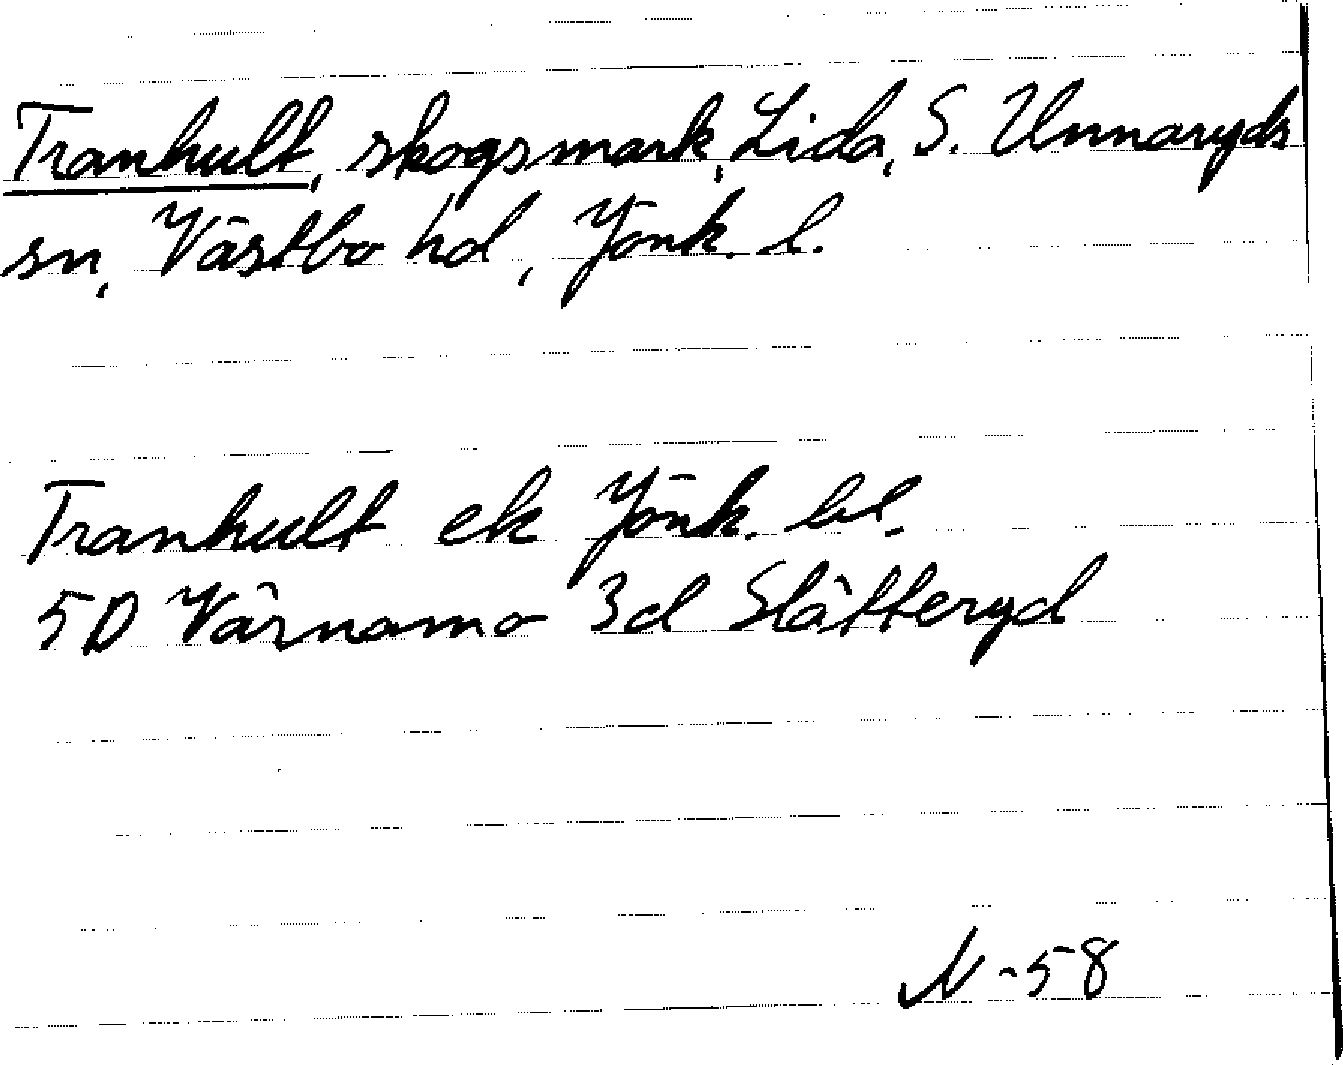 Tranhult, skogsmark, Lida, S. Unnaryds
sn, Västbo hd, Jönk. l.
Tranhult ek Jönk. bl.
5D Värnamo 3d Slätteryd
N-58